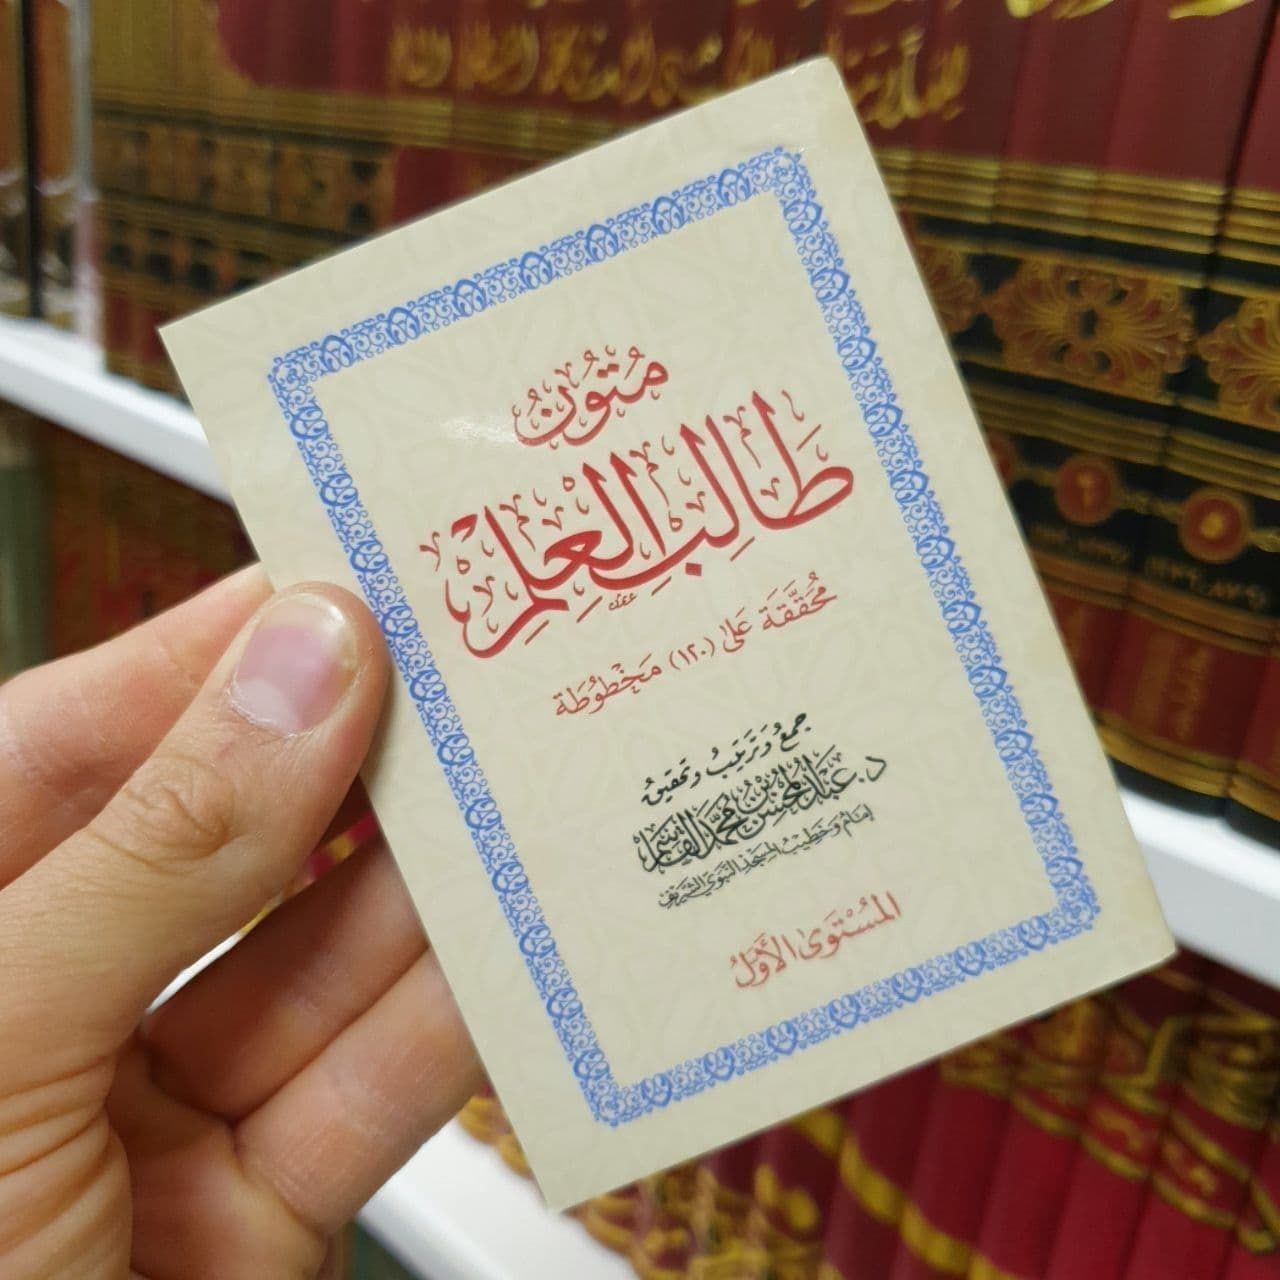 مُتُونُ
طَالِبِ الْعِلْمِ
مُحَقَّقَة عَلَى (١٢٠) مَخْطُوطَة
جَمْعُ وَتَرْتِيبُ وَتَحْقِيقُ
د. عَبْدُ المُحْسِنِ بْنُ مُحَمَّدٍ القَاسِم
إِمَامُ وَخَطِيبُ المَسْجِدِ النَّبَوِيِّ الشَّرِيفِ
المُسْتَوَى الأَوَّلُ